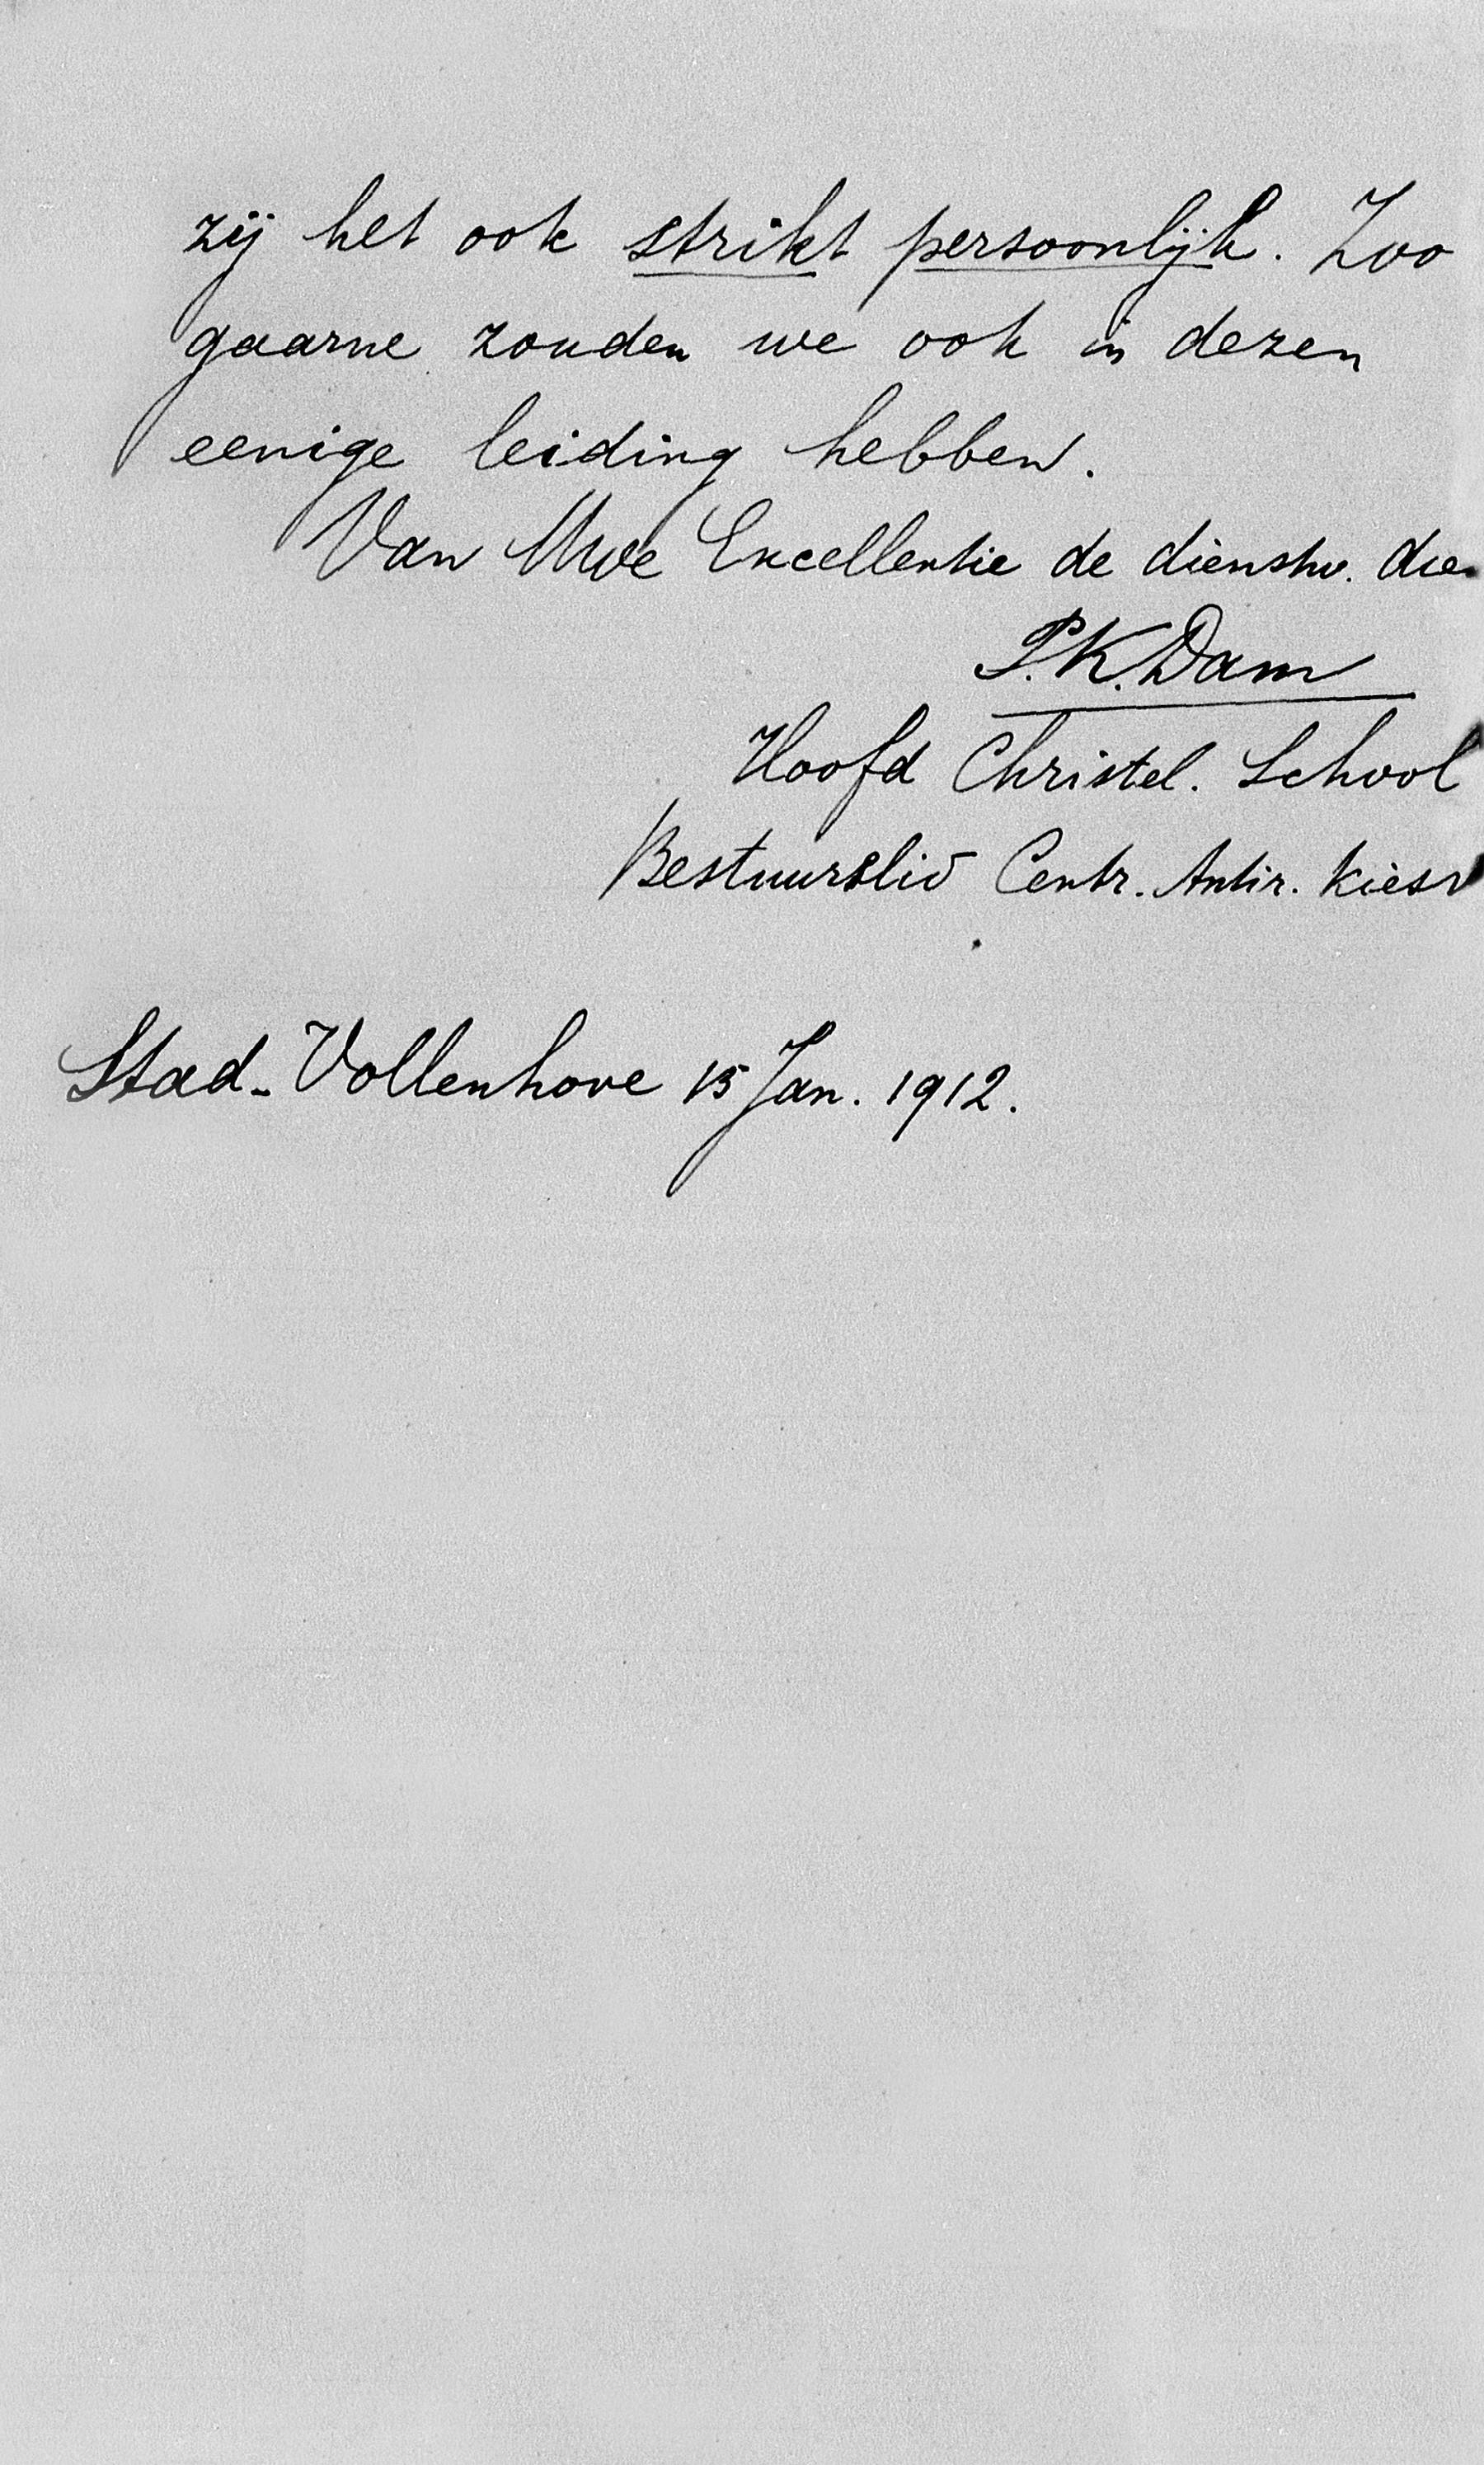 zij het ook strikt persoonlijk. Zoo
gaarne zouden we ook in dezen
eenige leiding hebben.
Van Uwe Excellentie de dienstw. die
P.K. Dam
Hoofd Christel. School
Bestuurslid Centr. Antir. Kiesv
Stad-Vollenhove 15 Jan. 1912.